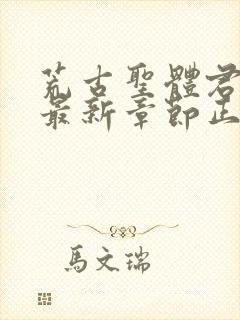 荒古聖體君
最新章節正
馬文瑞